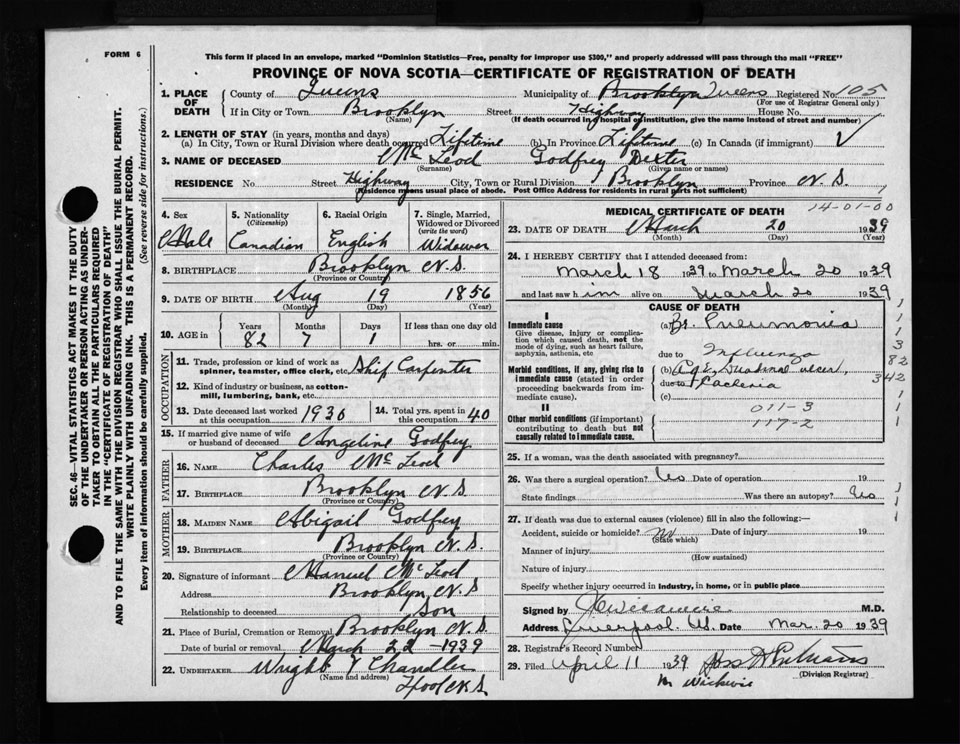 FORM 6
This form if placed in an envelope, marked "Dominion Statistics—Free, penalty for improper use $300," and properly addressed will pass through the mail "FREE"
PROVINCE OF NOVA SCOTIA—CERTIFICATE OF REGISTRATION OF DEATH
SEC. 46—VITAL STATISTICS ACT MAKES IT THE DUTY
OF THE UNDERTAKER OR PERSON ACTING AS UNDER-
TAKER TO OBTAIN ALL THE PARTICULARS REQUIRED
IN THE "CERTIFICATE OF REGISTRATION OF DEATH"
AND TO FILE THE SAME WITH THE DIVISION REGISTRAR WHO SHALL ISSUE THE BURIAL PERMIT.
WRITE PLAINLY WITH UNFADING INK. THIS IS A PERMANENT RECORD.
Every item of information should be carefully supplied. (See reverse side for instructions.)
1. PLACE OF DEATH County of Queens Municipality of Brooklyn Queens Registered No. 105
(For use of Registrar General only)
If in City or Town Brooklyn Street Highway House No.
(Name) (If death occurred in hospital or institution, give the name instead of street and number)
2. LENGTH OF STAY (in years, months and days)
(a) In City, Town or Rural Division where death occurred Lifetime (b) In Province Lifetime (c) In Canada (if immigrant)
3. NAME OF DECEASED McLeod Godfrey Dexter
(Surname) (Given name or names)
RESIDENCE No Street Highway City, Town or Rural Division Brooklyn Province N.S.
(residence means usual place of abode. Post Office Address for residents in rural parts not sufficient)
4. Sex 5. Nationality (Citizenship) 6. Racial Origin 7. Single, Married, Widowed or Divorced (write the word)
Male Canadian English Widower
8. BIRTHPLACE Brooklyn N.S.
(Province or Country)
9. DATE OF BIRTH Aug 19 1856
(Month) (Day) (Year)
10. AGE in Years Months Days If less than one day old
82 7 1 hrs. or min.
OCCUPATION
11. Trade, profession or kind of work as spinner, teamster, office clerk, etc. Ship Carpenter
12. Kind of industry or business, as cotton-mill, lumbering, bank, etc.
13. Date deceased last worked at this occupation 1930 14. Total yrs. spent in this occupation 40
15. If married give name of wife or husband of deceased Angeline Godfrey
FATHER
16. NAME Charles McLeod
17. BIRTHPLACE Brooklyn N.S.
(Province or Country)
MOTHER
18. MAIDEN NAME Abigail Godfrey
19. BIRTHPLACE Brooklyn N.S.
(Province or Country)
20. Signature of informant Manuel McLeod
Address Brooklyn N.S
Relationship to deceased Son
21. Place of Burial, Cremation or Removal Brooklyn N.S
Date of burial or removal March 22 - 1939
22. UNDERTAKER Wright & Chandler
(Name and address)
MEDICAL CERTIFICATE OF DEATH 14-01-00
23. DATE OF DEATH March 20 1939
(Month) (Day) (Year)
24. I HEREBY CERTIFY that I attended deceased from:
March 18 1939 to March 20 1939
and last saw him alive on March 20 1939
CAUSE OF DEATH
I
Immediate cause
Give disease, injury or complication which caused death, not the mode of dying, such as heart failure, asphyxia, asthenia, etc
(a) Br. Pneumonia
due to Influenza
Morbid conditions, if any, giving rise to immediate cause (stated in order proceeding backwards from immediate cause).
(b) Age, Duodenal ulcer,
due to
(c)
II
Other morbid conditions (if important) contributing to death but not causally related to immediate cause.
011-3
117-2
1
1
3
82
342
1
1
25. If a woman, was the death associated with pregnancy?
26. Was there a surgical operation? No Date of operation 19
State findings Was there an autopsy? No
27. If death was due to external causes (violence) fill in also the following:—
Accident, suicide or homicide? No Date of injury 19
(State which)
Manner of injury
(How sustained)
Nature of injury
Specify whether injury occurred in industry, in home, or in public place
Signed by M.D.
Address Liverpool. N.S. Date Mar. 20 1939
28. Registrar's Record Number
29. Filed April 11 1939
(Division Registrar)